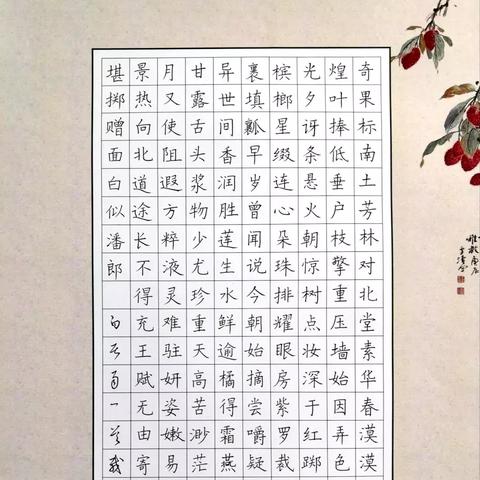 奇果标南土芳林对北堂素华春漠漠
煌叶捧低垂户枝擎重压墙始因弄色
光夕讶条悬火朝惊树点妆深于红踯
槟榔星缀连心朵珠排耀眼房紫罗裁
裹填瓤早岁曾闻说今朝始摘尝嚼疑
异世间香润胜莲生水鲜逾橘得霜燕
甘露舌头浆物少尤珍重天高苦渺茫
月又使阻遐方粹液灵难驻妍姿嫩易
景热向北道途长不得充王赋无由寄
堪掷赠面白似潘郎
白居易一首